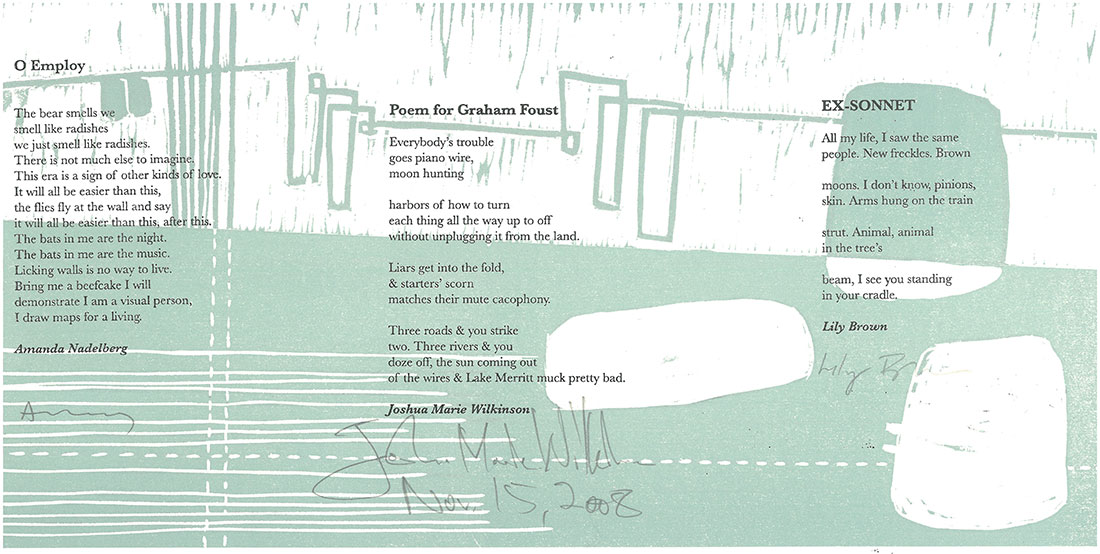 O Employ
The bear smells we
smell like radishes
we just smell like radishes.
There is not much else to imagine.
This era is a sign of other kinds of love.
It will all be easier than this,
the flies fly at the wall and say
it will all be easier than this, after this.
The bats in me are the night.
The bats in me are the music.
Licking walls is no way to live.
Bring me a beefcake I will
demonstrate I am a visual person,
I draw maps for a living.
Amanda Nadelberg
Poem for Graham Foust
Everybody's trouble
goes piano wire,
moon hunting
harbors of how to turn
each thing all the way up to off
without unplugging it from the land.
Liars get into the fold,
& starters' scorn
matches their mute cacophony.
Three roads & you strike
two. Three rivers & you
doze off, the sun coming out
of the wires & Lake Merritt muck pretty bad.
Joshua Marie Wilkinson
Joshua Marie Wilkinson
Nov. 15, 2008
EX-SONNET
All my life, I saw the same
people. New freckles. Brown
moons. I don't know, pinions,
skin. Arms hung on the train
strut. Animal, animal
in the tree's
beam, I see you standing
in your cradle.
Lily Brown
Lily B